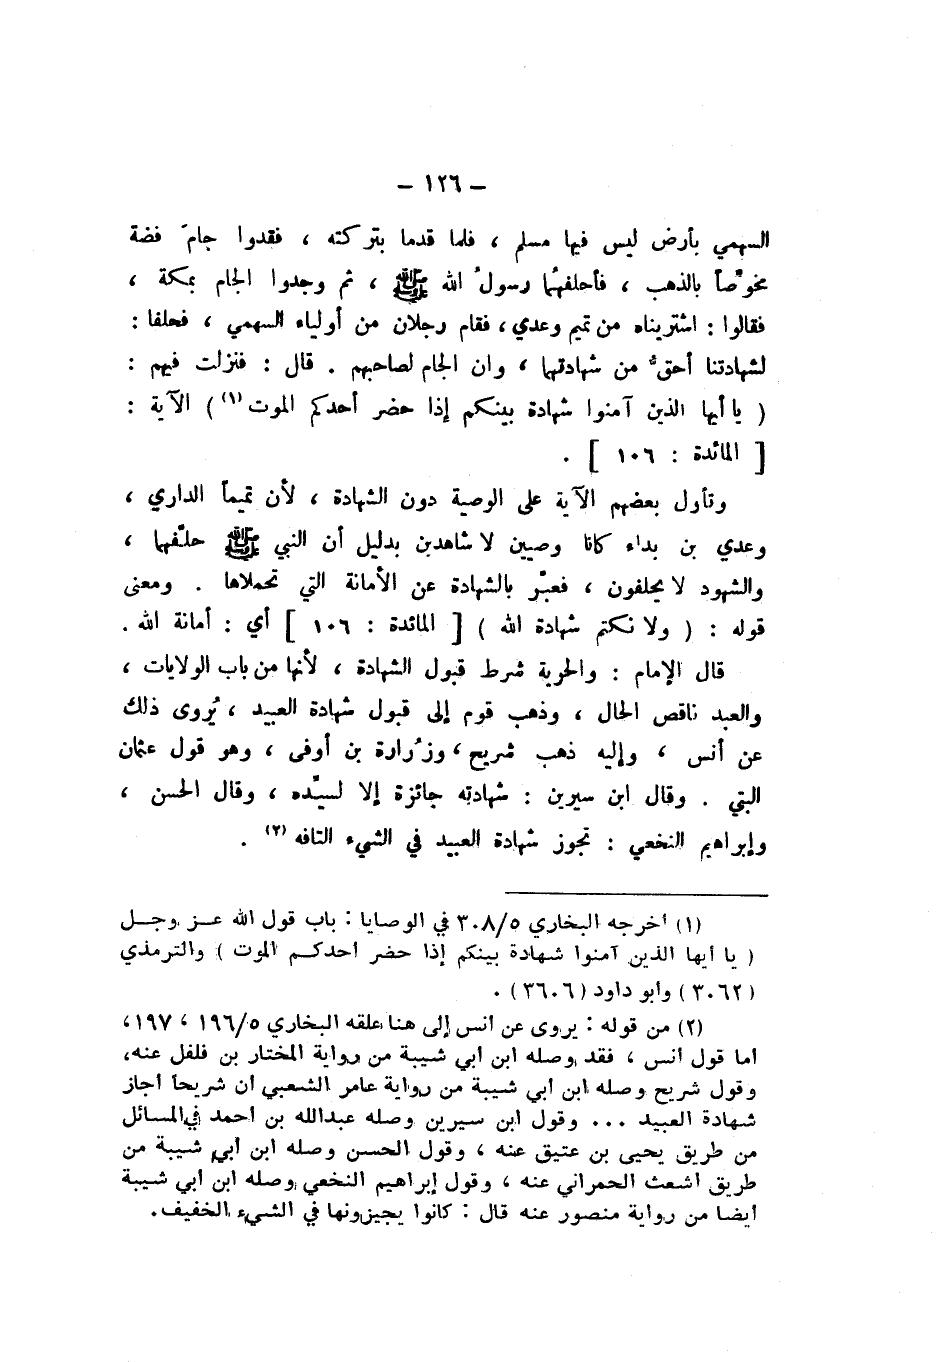 – ١٢٦ –
السهمي بأرض ليس فيها مسلم ، فلما قدما بتركته ، فقدوا جامَ فضة
مخوَّصاً بالذهب ، فأحلفهُما رسولُ الله ﷺ ، ثم وجدوا الجام بمكة ،
فقالوا : اشتريناه من تميم وعدي ، فقام رجلان من أولياء السهمي ، فحلفا :
لشهادتنا أحقُّ من شهادتهما ، وان الجام لصاحبهم . قال : فنزلت فيهم :
( يا أيها الذين آمنوا شهادة بينكم إذا حضر أحدكم الموت (١) ) الآية :
[ المائدة : ١٠٦ ] .
وتأول بعضهم الآية على الوصية دون الشهادة ، لأن تميماً الداري ،
وعدي بن بداء كانا وصيين لا شاهدين بدليل أن النبي ﷺ حلَّفهما ،
والشهود لا يحلفون ، فعبَّر بالشهادة عن الأمانة التي تحملاها . ومعنى
قوله : ( ولا نكتم شهادة الله ) [ المائدة : ١٠٦ ] أي : أمانة الله .
قال الإمام : والحرية شرط قبول الشهادة ، لأنها من باب الولايات ،
والعبد ناقص الحال ، وذهب قوم إلى قبول شهادة العبيد ، يُروى ذلك
عن أنس ، وإليه ذهب شريح ، وزُرارة بن أوفى ، وهو قول عثمان
البتي . وقال ابن سيرين : شهادته جائزة إلا لسيِّده ، وقال الحسن ،
وإبراهيم النخعي : تجوز شهادة العبيد في الشيء التافه (٢) .
(١) أخرجه البخاري ٣٠٨/٥ في الوصايا : باب قول الله عز وجل
( يا أيها الذين آمنوا شهادة بينكم إذا حضر أحدكم الموت ) والترمذي
(٣٠٦٢) وأبو داود (٣٦٠٦) .
(٢) من قوله : يروى عن أنس إلى هنا علقه البخاري ١٩٦/٥ ، ١٩٧،
أما قول أنس ، فقد وصله ابن أبي شيبة من رواية المختار بن فلفل عنه،
وقول شريح وصله ابن أبي شيبة من رواية عامر الشعبي أن شريحاً أجاز
شهادة العبيد ... وقول ابن سيرين وصله عبدالله بن أحمد في المسائل
من طريق يحيى بن عتيق عنه ، وقول الحسن وصله ابن أبي شيبة من
طريق أشعث الحمراني عنه ، وقول إبراهيم النخعي وصله ابن أبي شيبة
أيضا من رواية منصور عنه قال : كانوا يجيزونها في الشيء الخفيف.